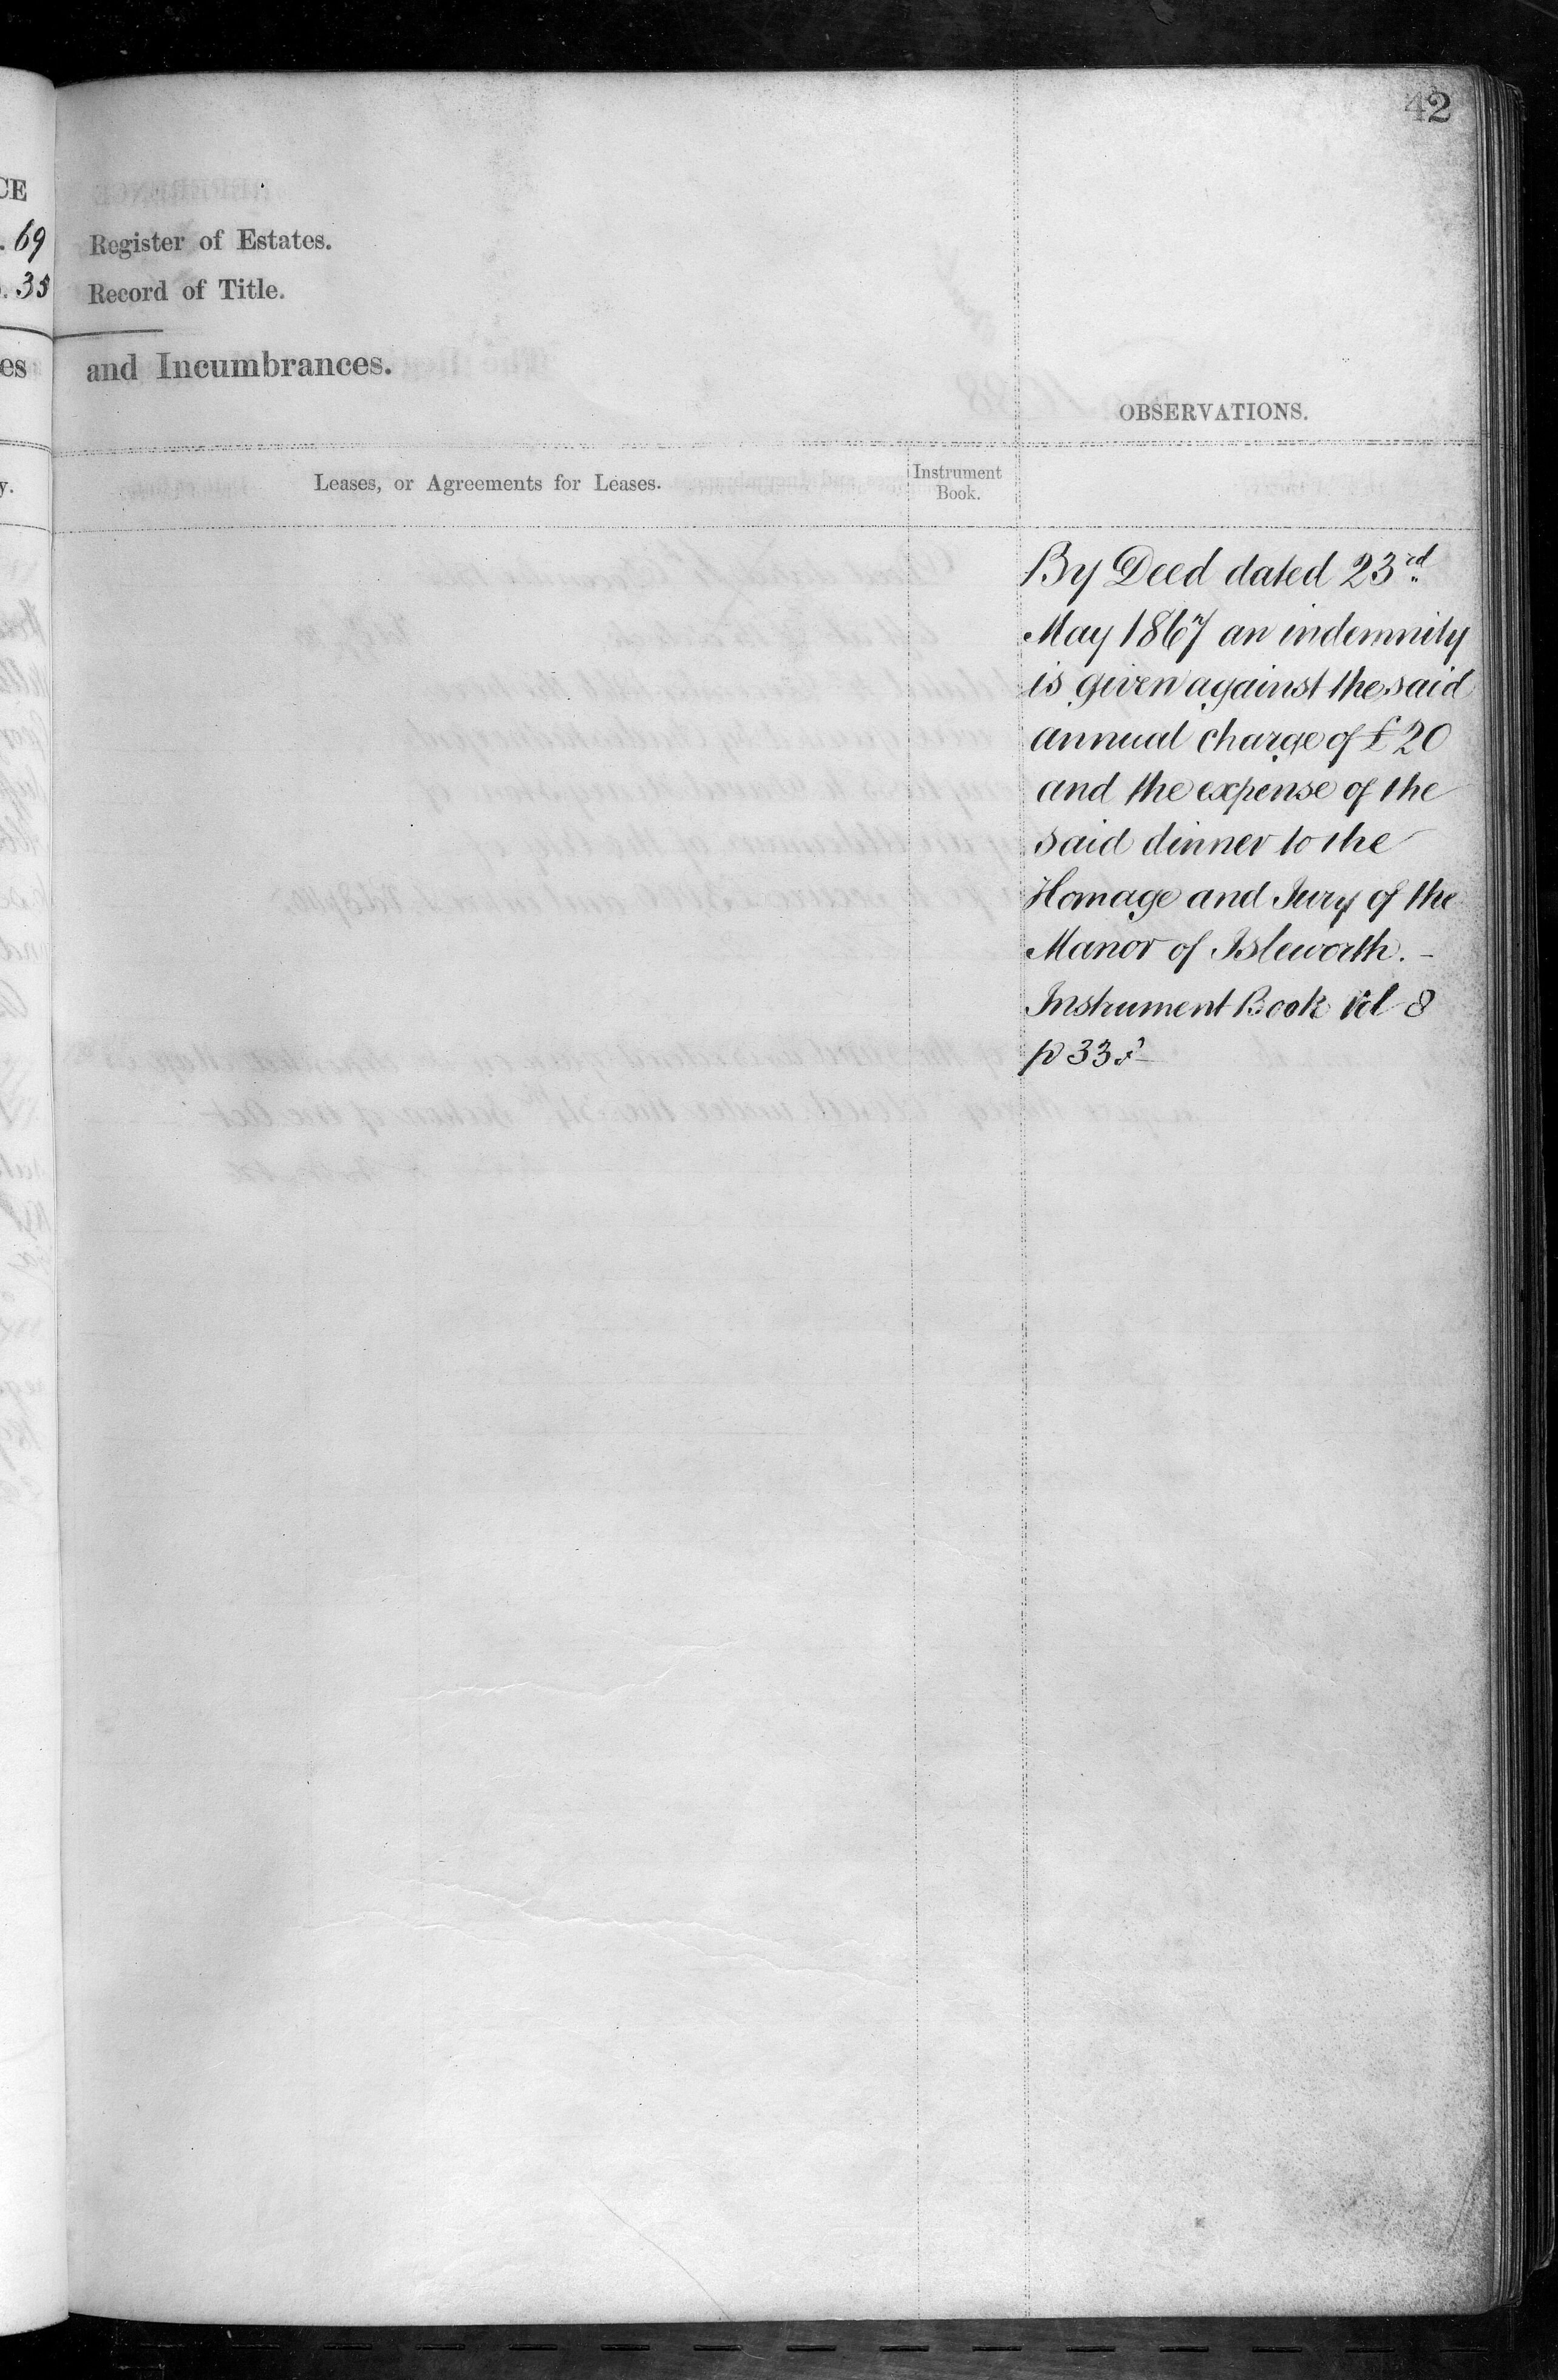 42
CE
. 69
Register of Estates.
. 35
Record of Title.
es
and Incumbrances.
OBSERVATIONS.
y.
Leases, or Agreements for Leases.
Instrument
Book.
By Deed dated 23rd
May 1867 an indemnity
is given against the said
annual charge of £20
and the expense of the
said dinner to the
Homage and Jury of the
Manor of Isleworth. -
Instrument Book Vol 8